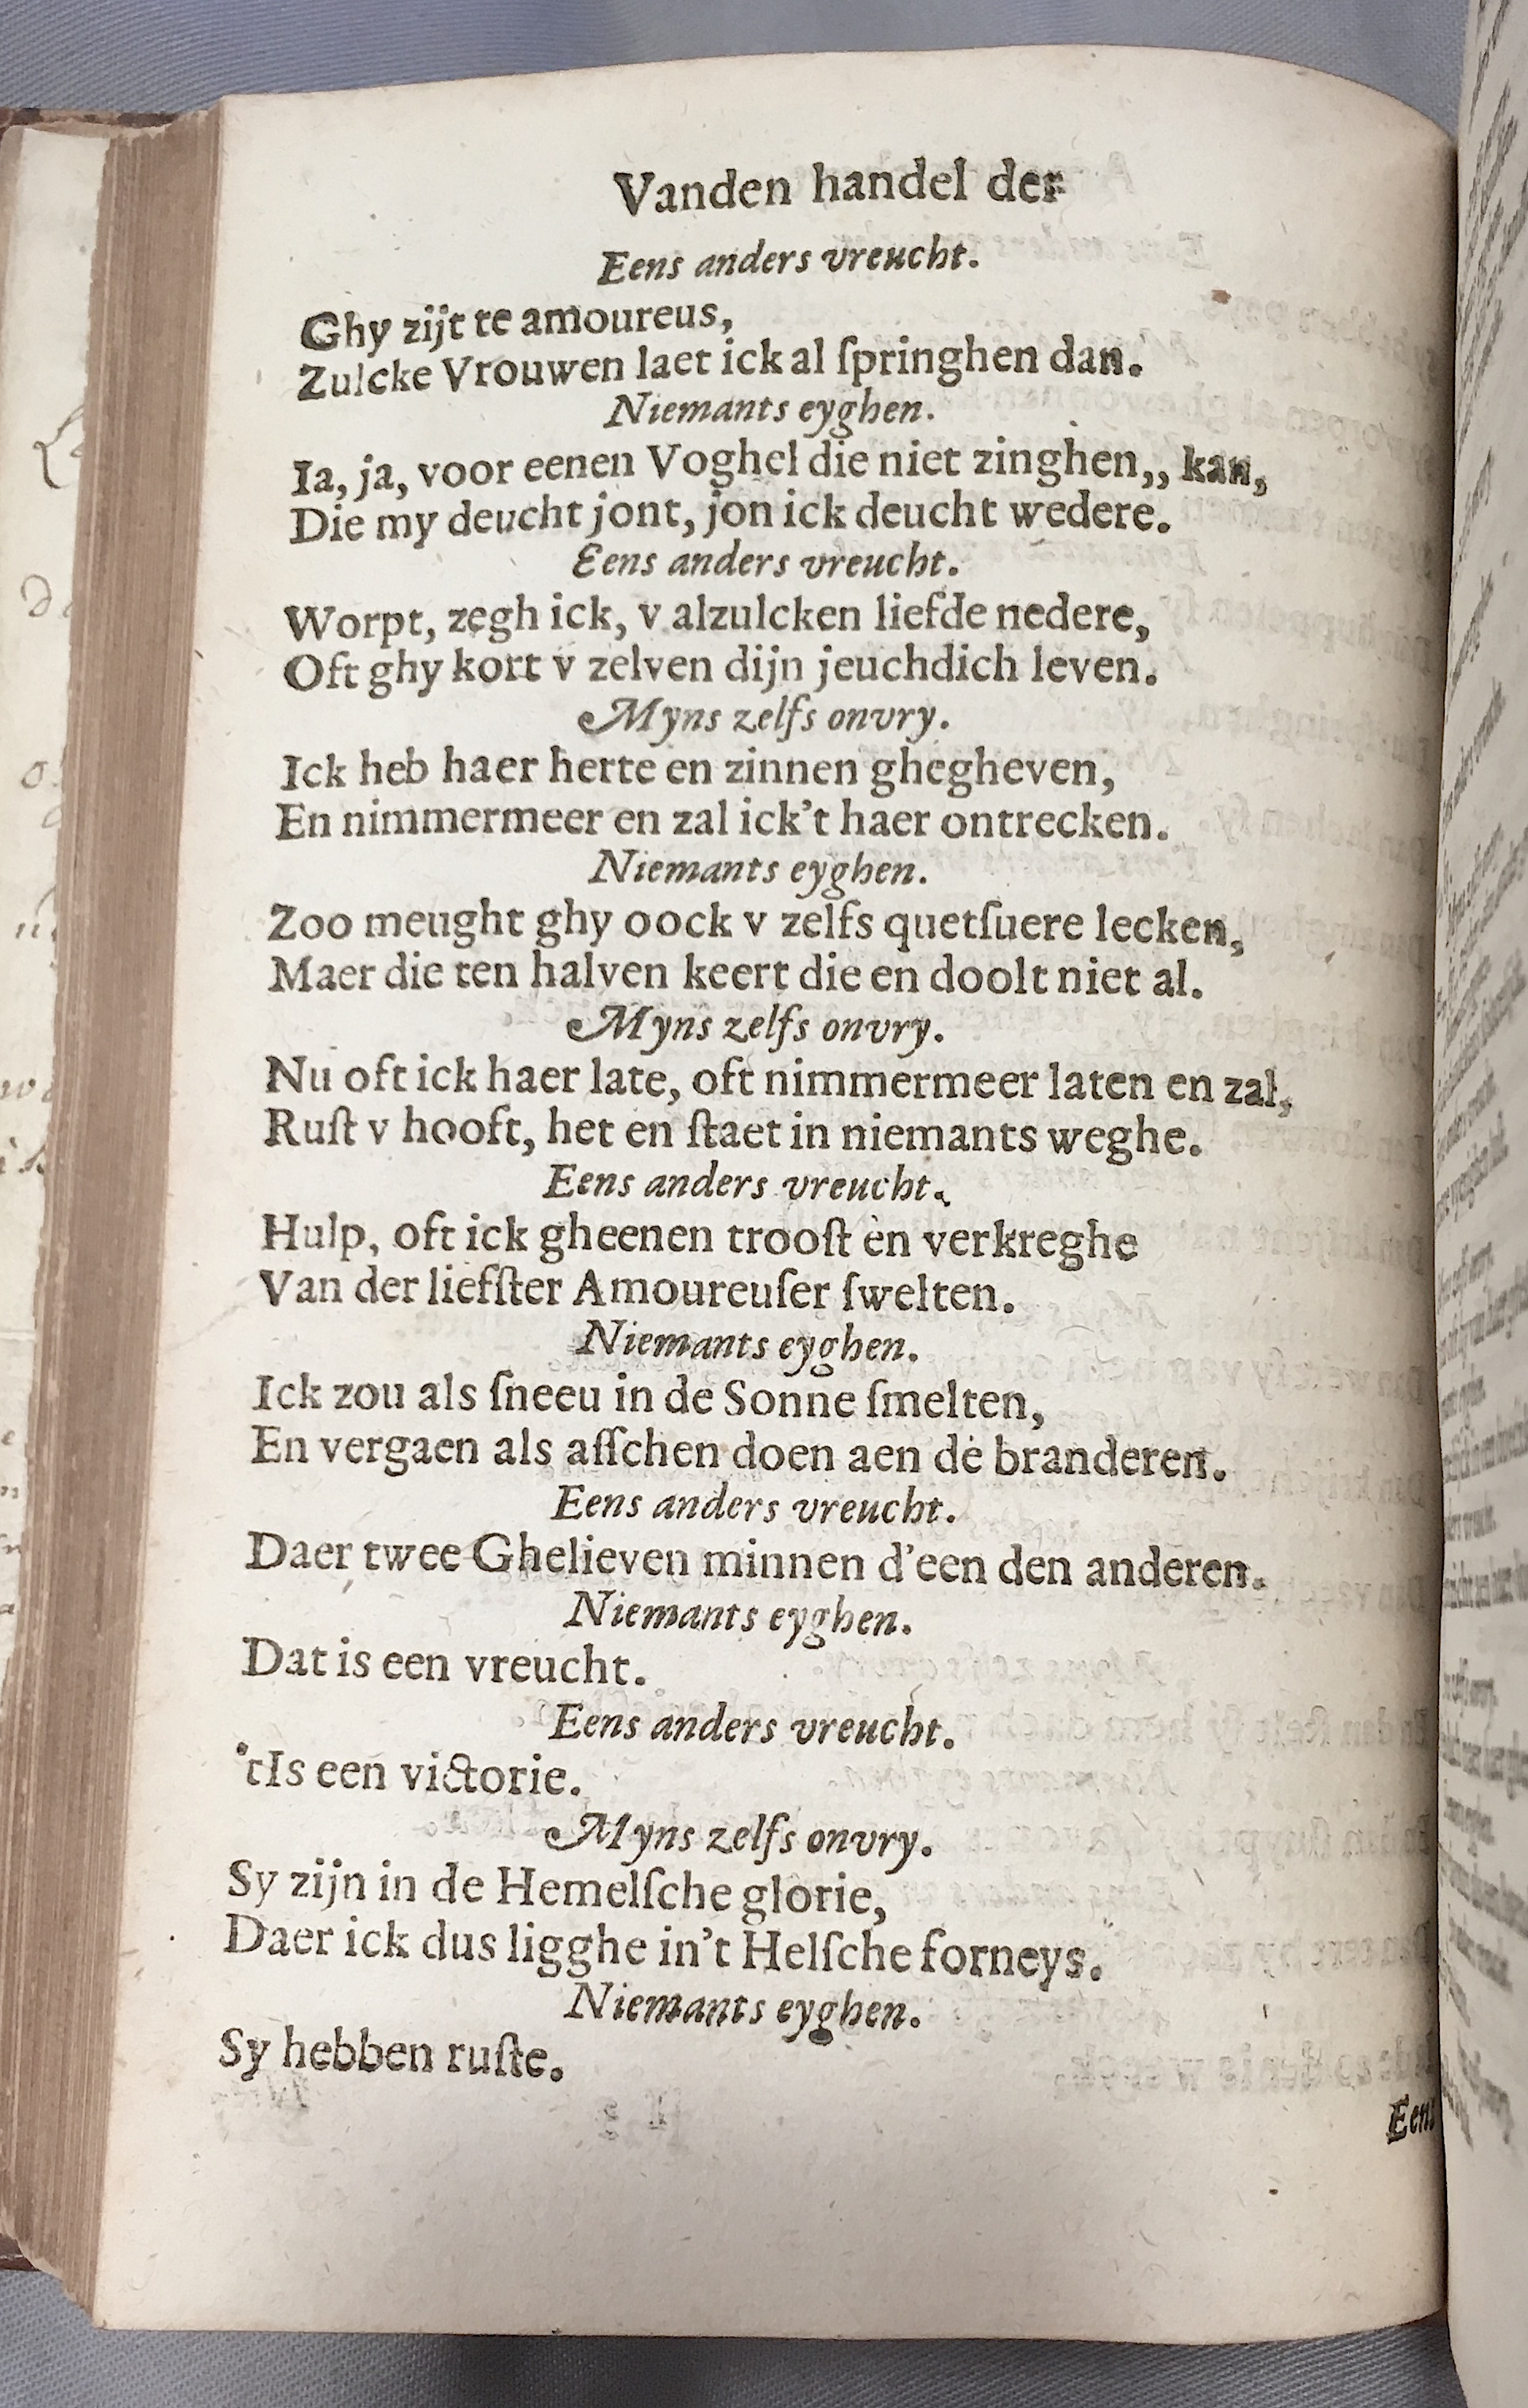 Vanden handel der
Eens anders vreucht.
Ghy zijt te amoureus,
Zulcke Vrouwen laet ick al ſpringhen dan.
Niemants eyghen.
Ia, ja, voor eenen Voghel die niet zinghen,, kan,
Die my deucht jont, jon ick deucht wedere.
Eens anders vreucht.
Worpt, zegh ick, v alzulcken liefde nedere,
Oft ghy kort v zelven dijn jeuchdich leven.
Myns zelfs onvry.
Ick heb haer herte en zinnen ghegheven,
En nimmermeer en zal ick't haer ontrecken.
Niemants eyghen.
Zoo meught ghy oock v zelfs quetſuere lecken,
Maer die ten halven keert die en doolt niet al.
Myns zelfs onvry.
Nu oft ick haer late, oft nimmermeer laten en zal,
Ruſt v hooft, het en ſtaet in niemants weghe.
Eens anders vreucht.
Hulp, oft ick gheenen trooſt en verkreghe
Van der liefſter Amoureuſer ſwelten.
Niemants eyghen.
Ick zou als ſneeu in de Sonne ſmelten,
En vergaen als aſſchen doen aen de branderen.
Eens anders vreucht.
Daer twee Ghelieven minnen d'een den anderen.
Niemants eyghen.
Dat is een vreucht.
Eens anders vreucht.
'tIs een victorie.
Myns zelfs onvry.
Sy zijn in de Hemelſche glorie,
Daer ick dus ligghe in't Helſche forneys.
Niemants eyghen.
Sy hebben ruſte.